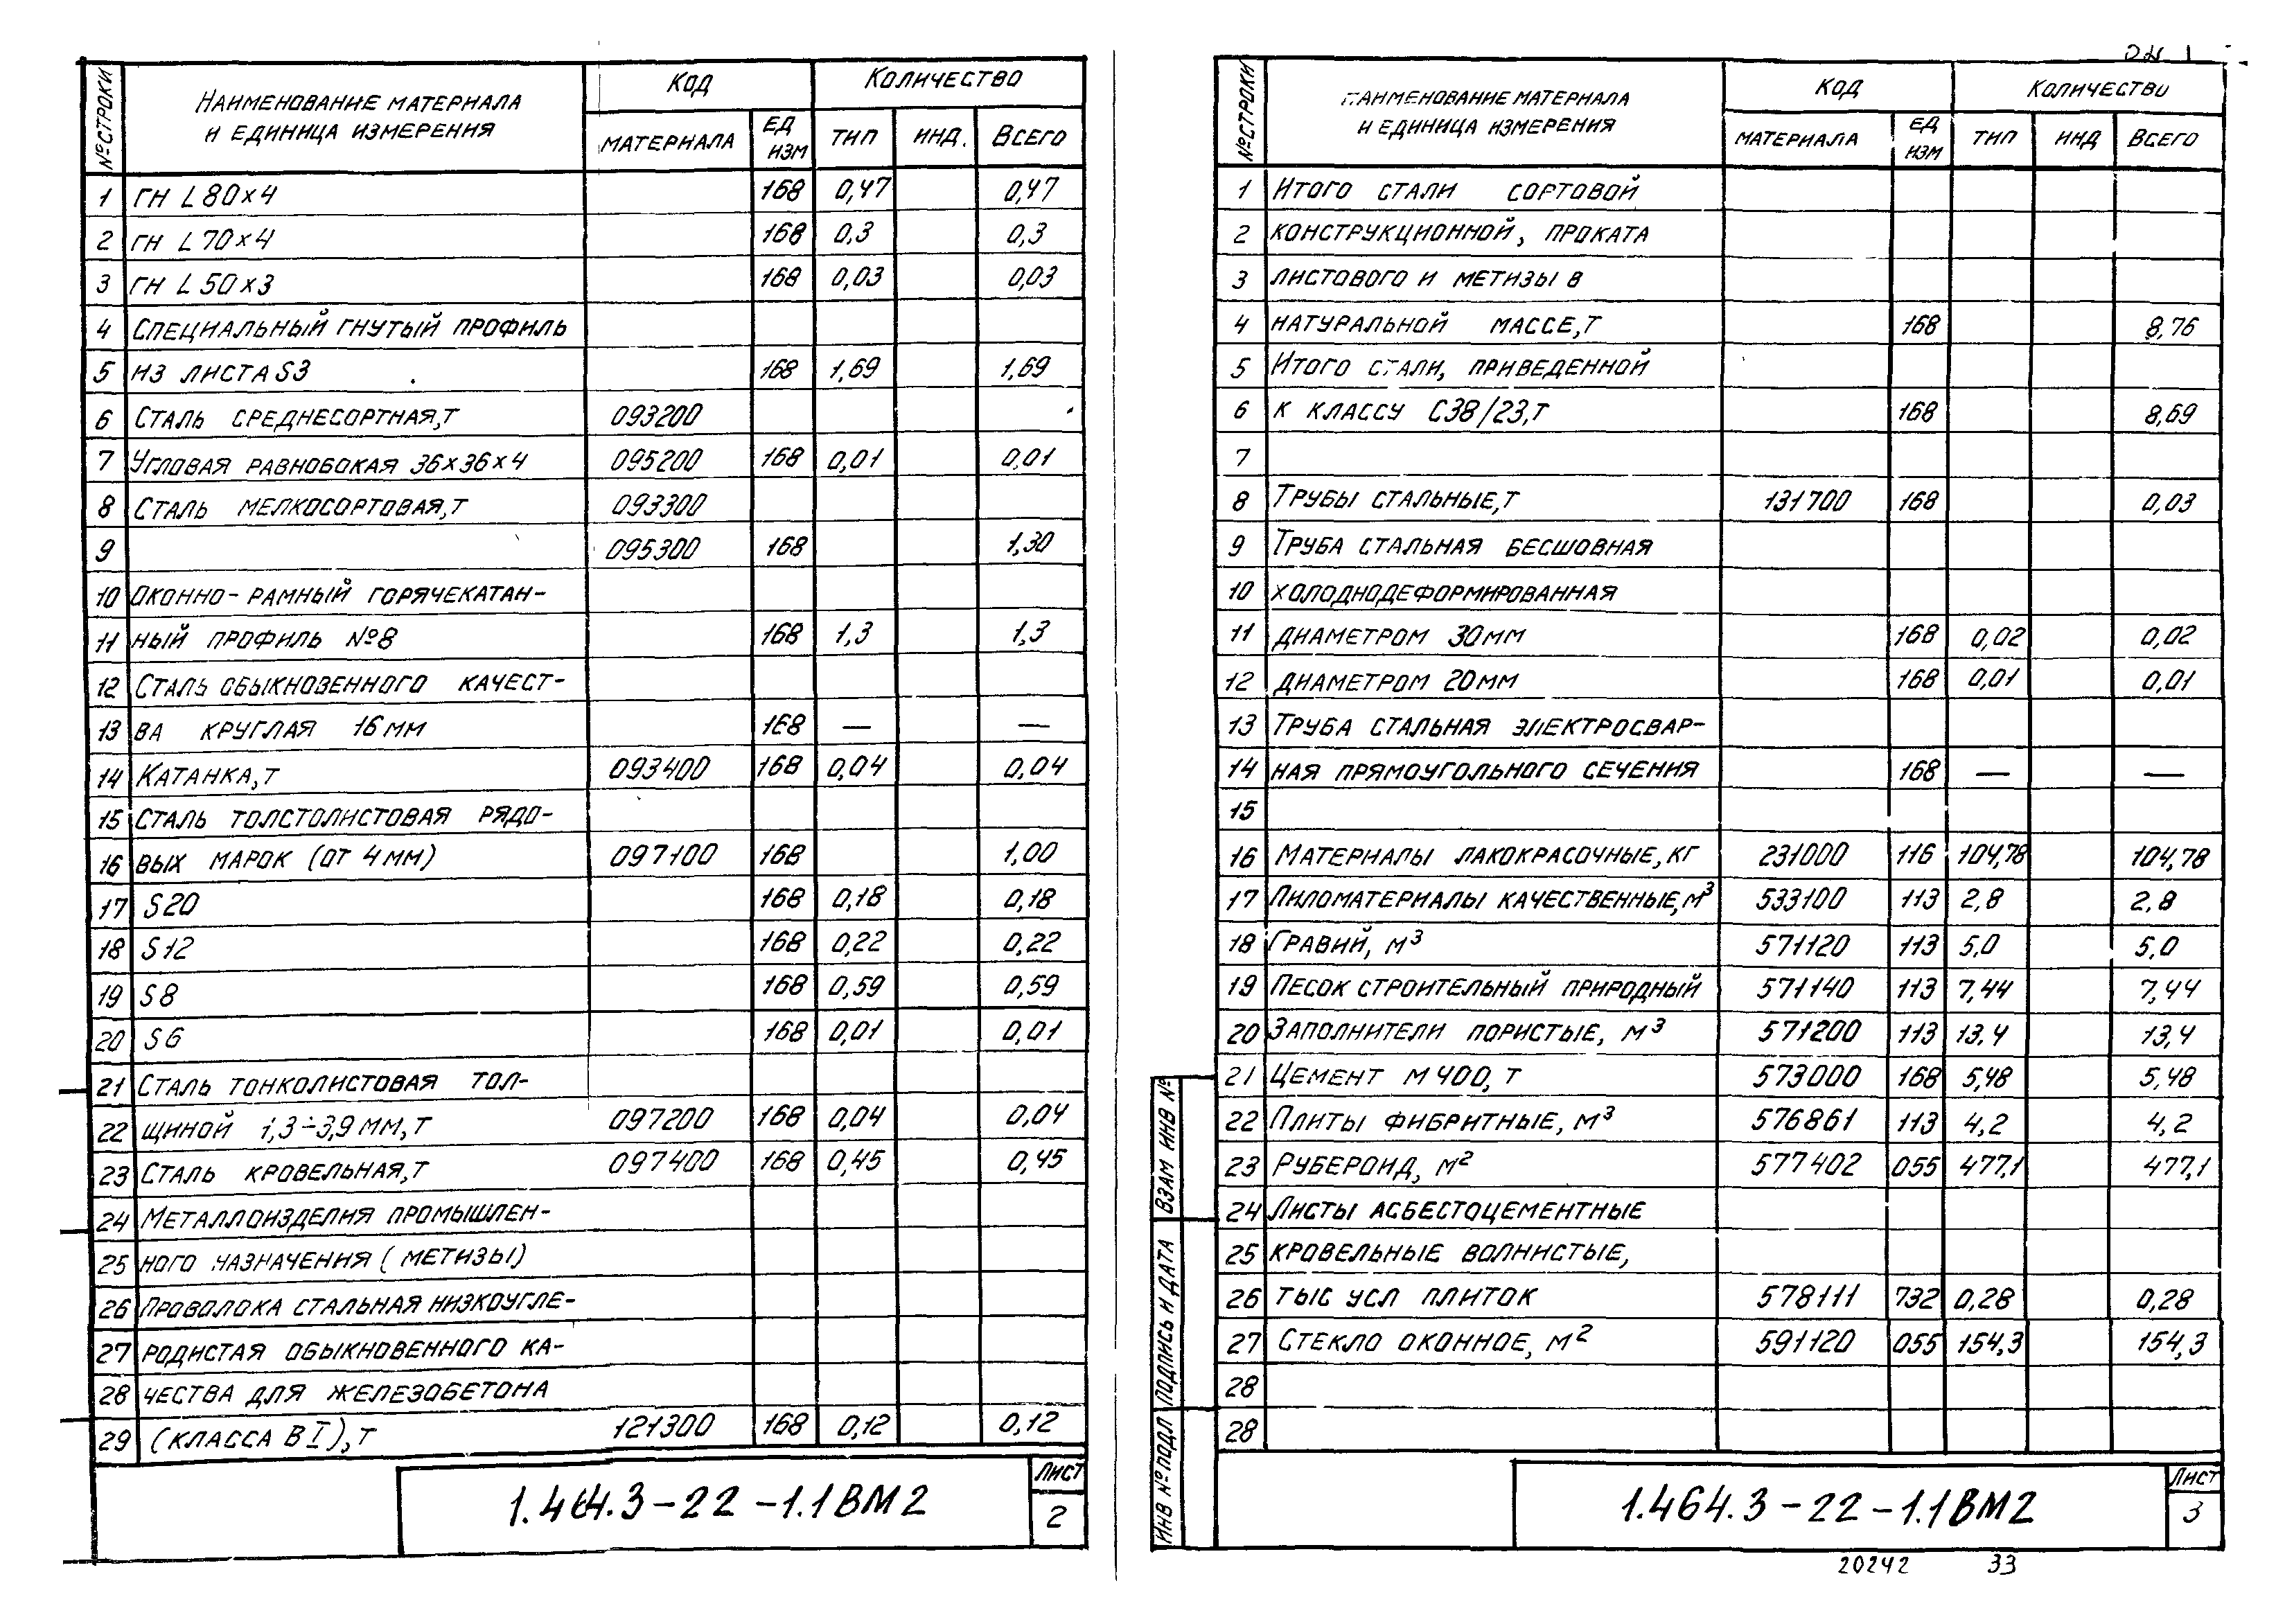 № строки | Наименование материала и единица измерения | Код | Количество
материала | ед изм | тип | инд. | Всего
1 гн L 80×4 168 0,47 0,47
2 гн L 70×4 168 0,3 0,3
3 гн L 50×3 168 0,03 0,03
4 Специальный гнутый профиль
5 из листа S3 168 1,69 1,69
6 Сталь среднесортная, т 093200
7 Угловая равнобокая 36×36×4 095200 168 0,01 0,01
8 Сталь мелкосортовая, т 093300
9 095300 168 1,30
10 оконно-рамный горячекатан-
11 ный профиль №8 168 1,3 1,3
12 Сталь обыкновенного качест-
13 ва круглая 16 мм 168 — —
14 Катанка, т 093400 168 0,04 0,04
15 Сталь толстолистовая рядо-
16 вых марок (от 4 мм) 097100 168 1,00
17 S20 168 0,18 0,18
18 S12 168 0,22 0,22
19 S8 168 0,59 0,59
20 S6 168 0,01 0,01
21 Сталь тонколистовая тол-
22 щиной 1,3÷3,9 мм, т 097200 168 0,04 0,04
23 Сталь кровельная, т 097400 168 0,45 0,45
24 Металлоизделия промышлен-
25 ного назначения (метизы)
26 Проволока стальная низкоугле-
27 родистая обыкновенного ка-
28 чества для железобетона
29 (класса В I), т 121300 168 0,12 0,12
1.464.3-22-1.1ВМ2
Лист
2
№ строки | Наименование материала и единица измерения | Код | Количество
материала | ед изм | тип | инд | Всего
1 Итого стали сортовой
2 конструкционной, проката
3 листового и метизы в
4 натуральной массе, т 168 8,76
5 Итого стали, приведенной
6 к классу С38/23, т 168 8,69
7
8 Трубы стальные, т 131700 168 0,03
9 Труба стальная бесшовная
10 холоднодеформированная
11 диаметром 30 мм 168 0,02 0,02
12 диаметром 20 мм 168 0,01 0,01
13 Труба стальная электросвар-
14 ная прямоугольного сечения 168 — —
15
16 Материалы лакокрасочные, кг 231000 116 104,78 104,78
17 Пиломатериалы качественные, м³ 533100 113 2,8 2,8
18 Гравий, м³ 571120 113 5,0 5,0
19 Песок строительный природный 571140 113 7,44 7,44
20 Заполнители пористые, м³ 571200 113 13,4 13,4
21 Цемент М400, т 573000 168 5,48 5,48
22 Плиты фибритные, м³ 576861 113 4,2 4,2
23 Рубероид, м² 577402 055 477,1 477,1
24 Листы асбестоцементные
25 кровельные волнистые,
26 тыс усл плиток 578111 732 0,28 0,28
27 Стекло оконное, м² 591120 055 154,3 154,3
28
28
Взам инв №
Подпись и дата
Инв № подл
1.464.3-22-1.1ВМ2
Лист
3
20242 33